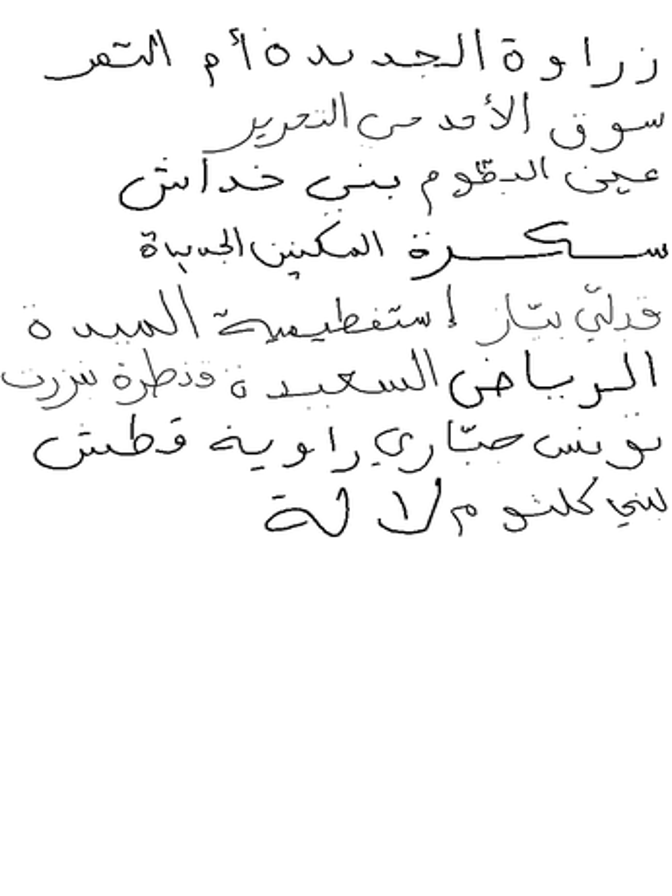 زراوة الجديدة أم التمر
سوق الأحد حي التحرير
عين البطوم بني خداش
سكرة المكنين الجديدة
قدلّي بيّاز إستفطيمية الميدة
الرياض السعيدة قنطرة بنزرت
تونس صبّاري زاوية قطش
بني كلثوم لالة